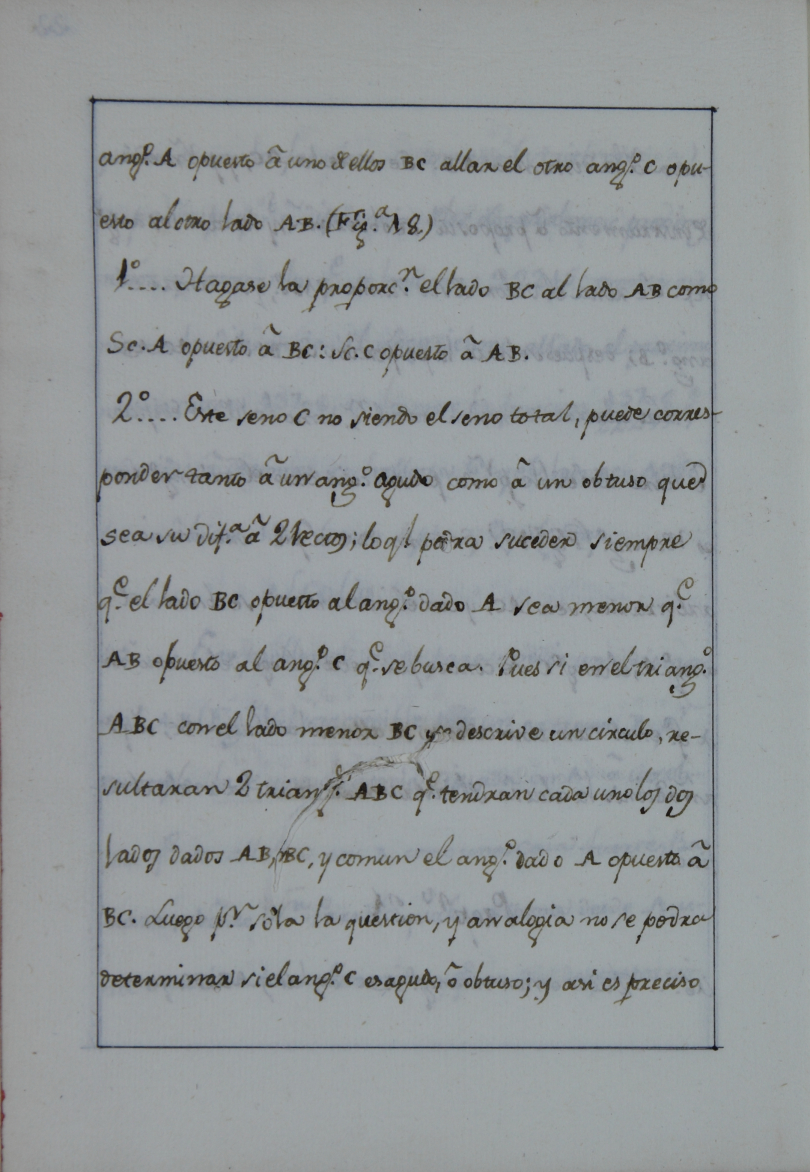 ang.º A opuesto â uno de ellos BC allar el otro ang.º C opu-
esto al otro lado AB. (Fig.ª 18.)
1º.... Hagase la proporc.n el lado BC al lado AB como
Sc. A opuesto â BC: Sc. C opuesto â AB.
2º.... Este seno C no siendo el seno total, puede corres-
ponder tanto â un ang.º agudo como â un obtuso que
sea su dif.ª â 2 Rectos; lo ql podra suceder siempre
q.e el lado BC opuesto al ang.º dado A sea menor q.e
AB opuesto al ang.º C q.e se busca. Pues si en el triang.º
ABC con el lado menor BC se descrive un círculo, re-
sultaran 2 triang.s ABC q.e tendran cada uno los dos
lados dados AB, BC, y comun el ang.º dado A opuesto â
BC. Luego p.r sola la question, y analogia no se podra
determinar si el ang.º C es agudo, ô obtuso; y asi es preciso